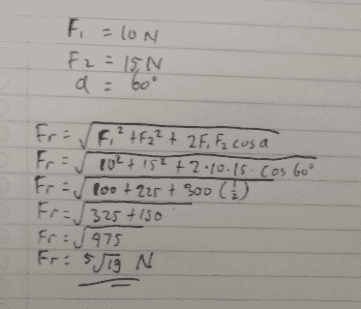 F₁ = 10 N
F₂ = 15 N
α = 60°
Fr = √F₁² + F₂² + 2F₁ F₂ cos α
Fr = √10² + 15² + 2·10·15· Cos 60°
Fr = √100 + 225 + 300 (½)
Fr = √325 + 150
Fr = √475
Fr = 5√19 N